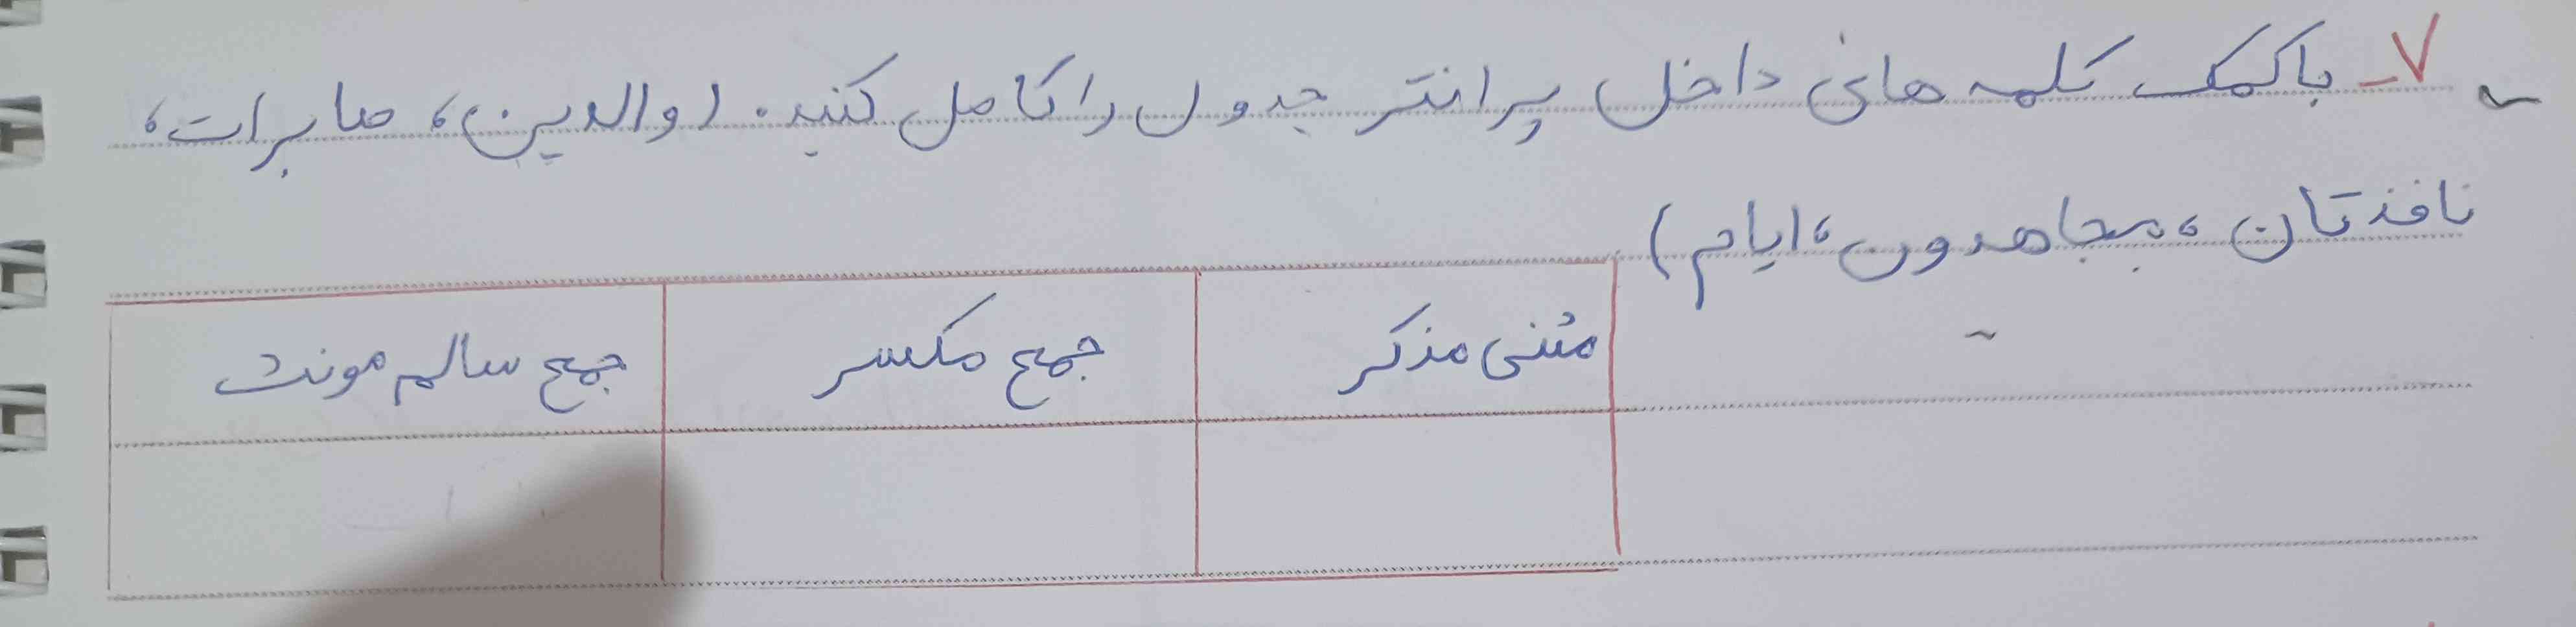 ۷- با کمک کلمه های داخل پرانتز جدول را کامل کنید. (والدین، صابرات،
نافذتان، مجاهدون، ایام)
مثنی مذکر جمع مکسر جمع سالم مونث